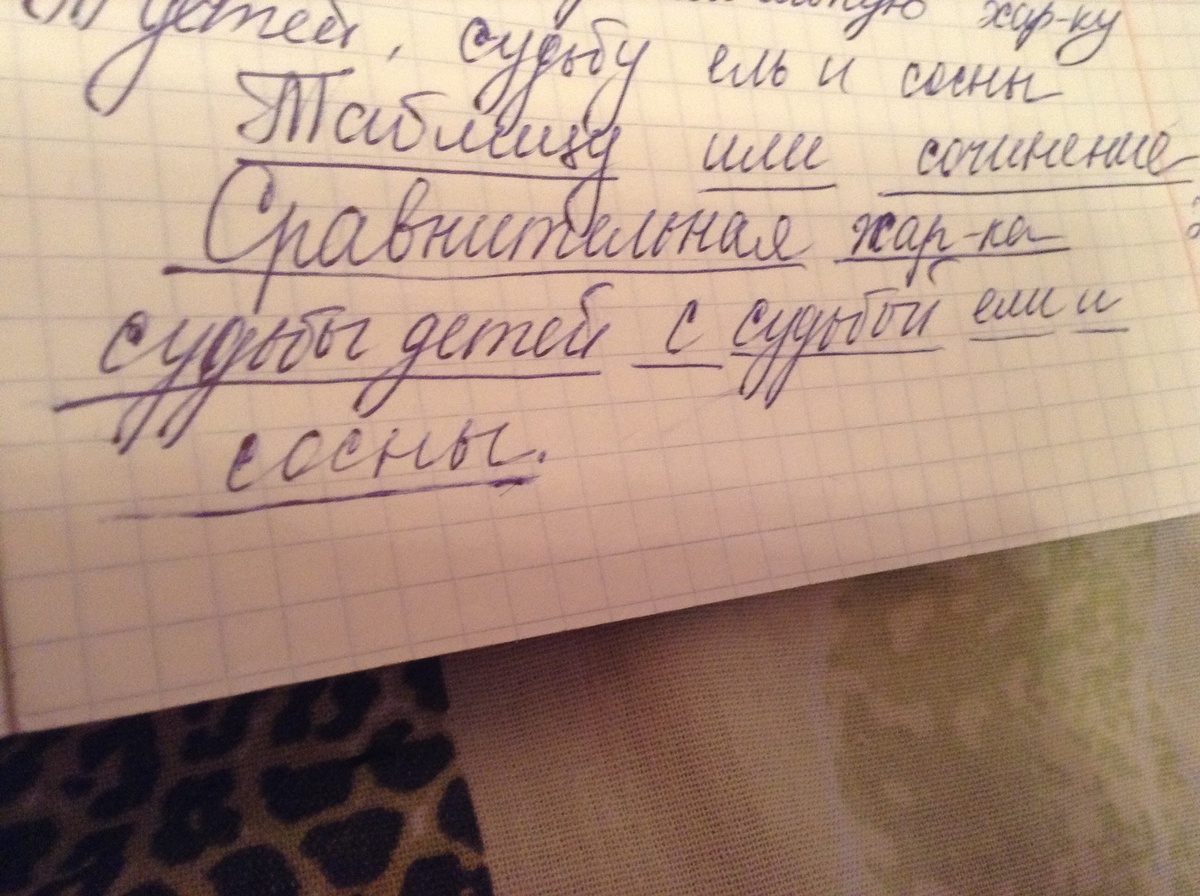 хар-ку
детей, судьбу ель и сосны
Таблицу или сочинение
Сравнительная хар-ка
судьбы детей с судьбой ели и
сосны.